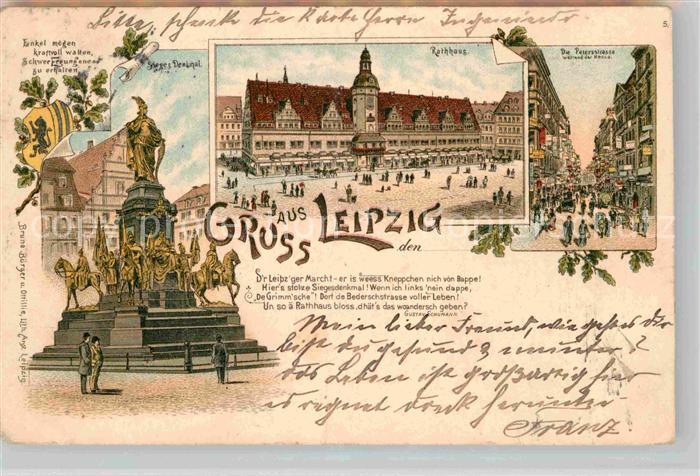 Bitte, schenke die Karte Herrn Ingenieur
5.
Enkel mögen
kraftvoll walten,
Schwer Errungenes
zu erhalten.
Sieges Denkmal.
Rathhaus.
Die Petersstrasse
während der Messe.
GRUSS AUS LEIPZIG
den
D'r Leipz'ger Marcht - er is weess Kneppchen nich von Bappe!
Hier's stolze Siegesdenkmal! Wenn ich links 'nein dappe,
„De Grimm'sche"! Dort de Bederschstrasse voller Leben!
Un so ä Rathhaus bloss, d'hät's das wo andersch geben?
GUSTAV SCHUMANN
Bruno Bürger u. Ottilie, Lith. Anst. Leipzig.
Mein lieber Freund, wie geht es dir
bist du gesund & munter?
das Leben ist großartig hier
es regnet herunter
Franz.